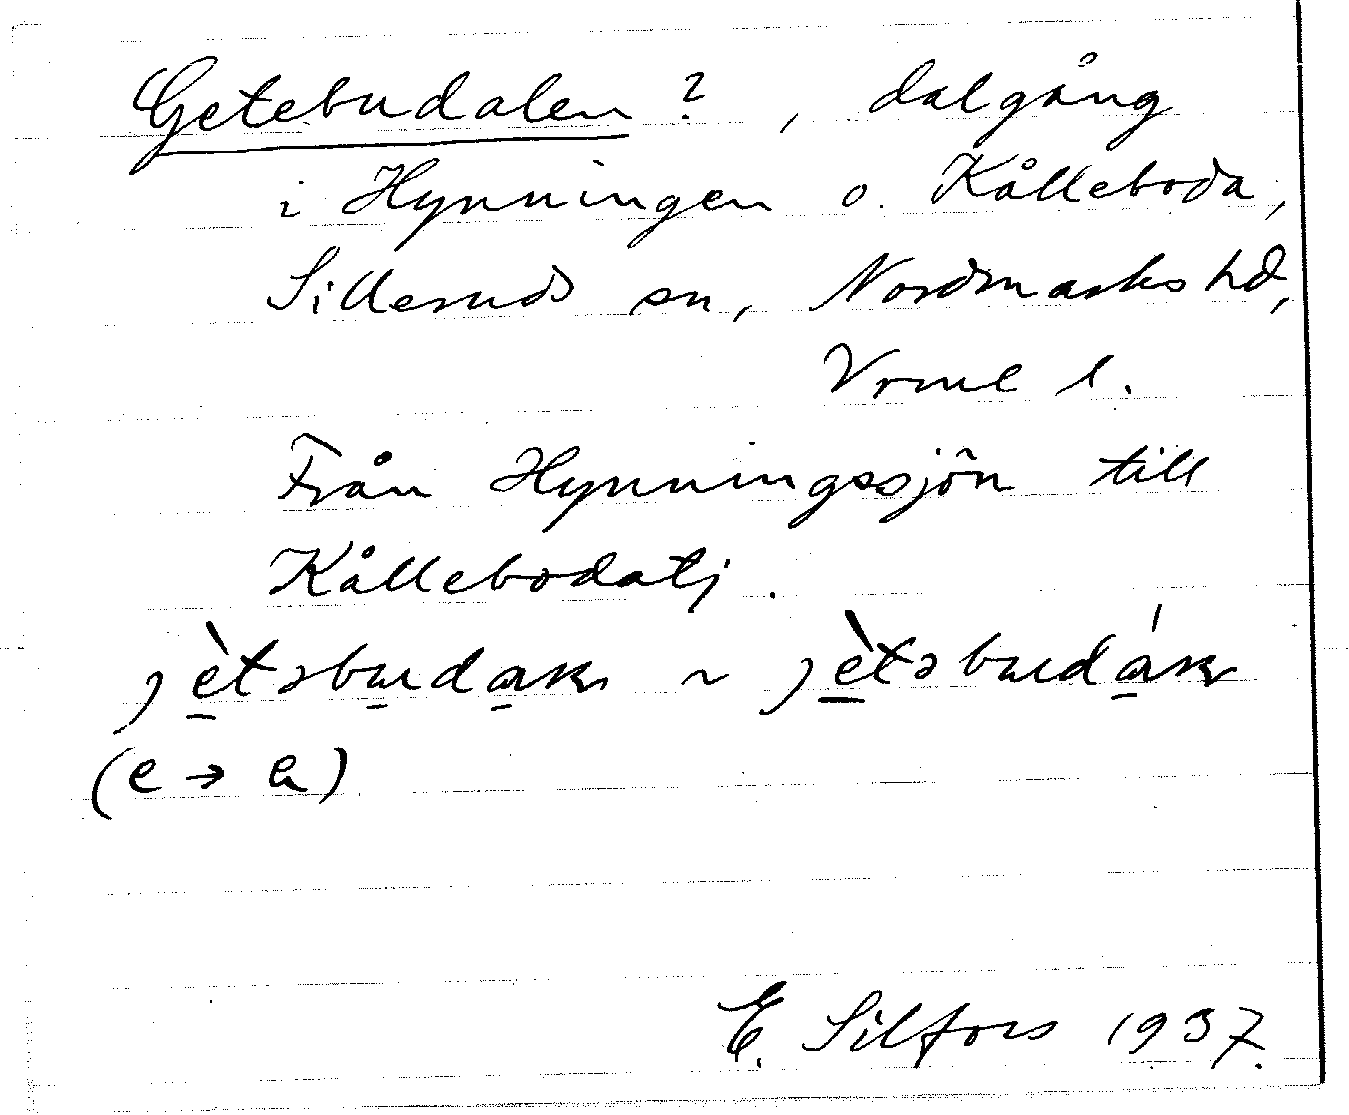 Getebudalen ?, dalgång
i Hynningen o. Kålleboda,
Silleruds sn, Nordmarks hd,
Vrml l.
Från Hynningssjön till
Kållebodatj.
(e → a)
E. Silfors 1937.